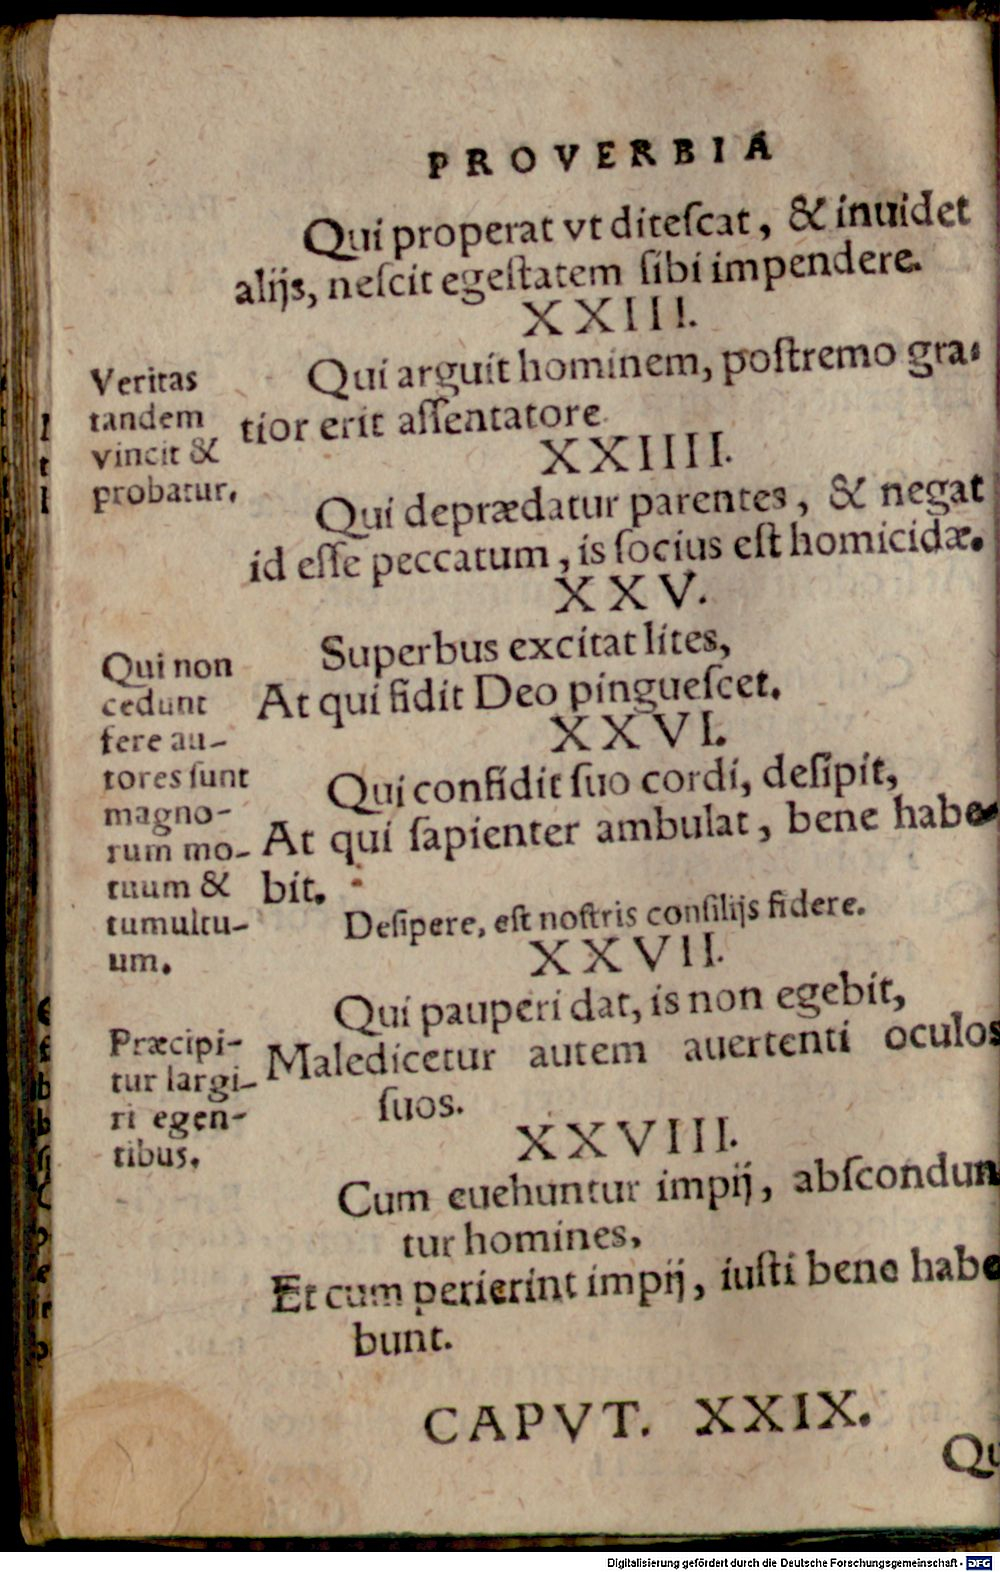 PROVERBIA
Qui properat vt diteſcat, & inuidet
alijs, neſcit egeſtatem ſibi impendere.
XXIII.
Qui arguit hominem, poſtremo gra-
tior erit aſſentatore.
XXIIII.
Qui deprædatur parentes, & negat
id eſſe peccatum, is ſocius eſt homicidæ.
XXV.
Superbus excitat lites,
At qui fidit Deo pingueſcet.
XXVI.
Qui confidit ſuo cordi, deſipit,
At qui ſapienter ambulat, bene habe-
bit.
Deſipere, eſt noſtris conſilijs fidere.
XXVII.
Qui pauperi dat, is non egebit,
Maledicetur autem auertenti oculos
ſuos.
XXVIII.
Cum euehuntur impij, abſcondun
tur homines,
Et cum perierint impij, iuſti bene habe
bunt.
CAPVT. XXIX.
Qu
Veritas
tandem
vincit &
probatur.
Qui non
cedunt
fere au-
tores ſunt
magno-
rum mo-
tuum &
tumultu-
um.
Præcipi-
tur largi-
ri egen-
tibus.
Digitalisierung gefördert durch die Deutsche Forschungsgemeinschaft - DFG